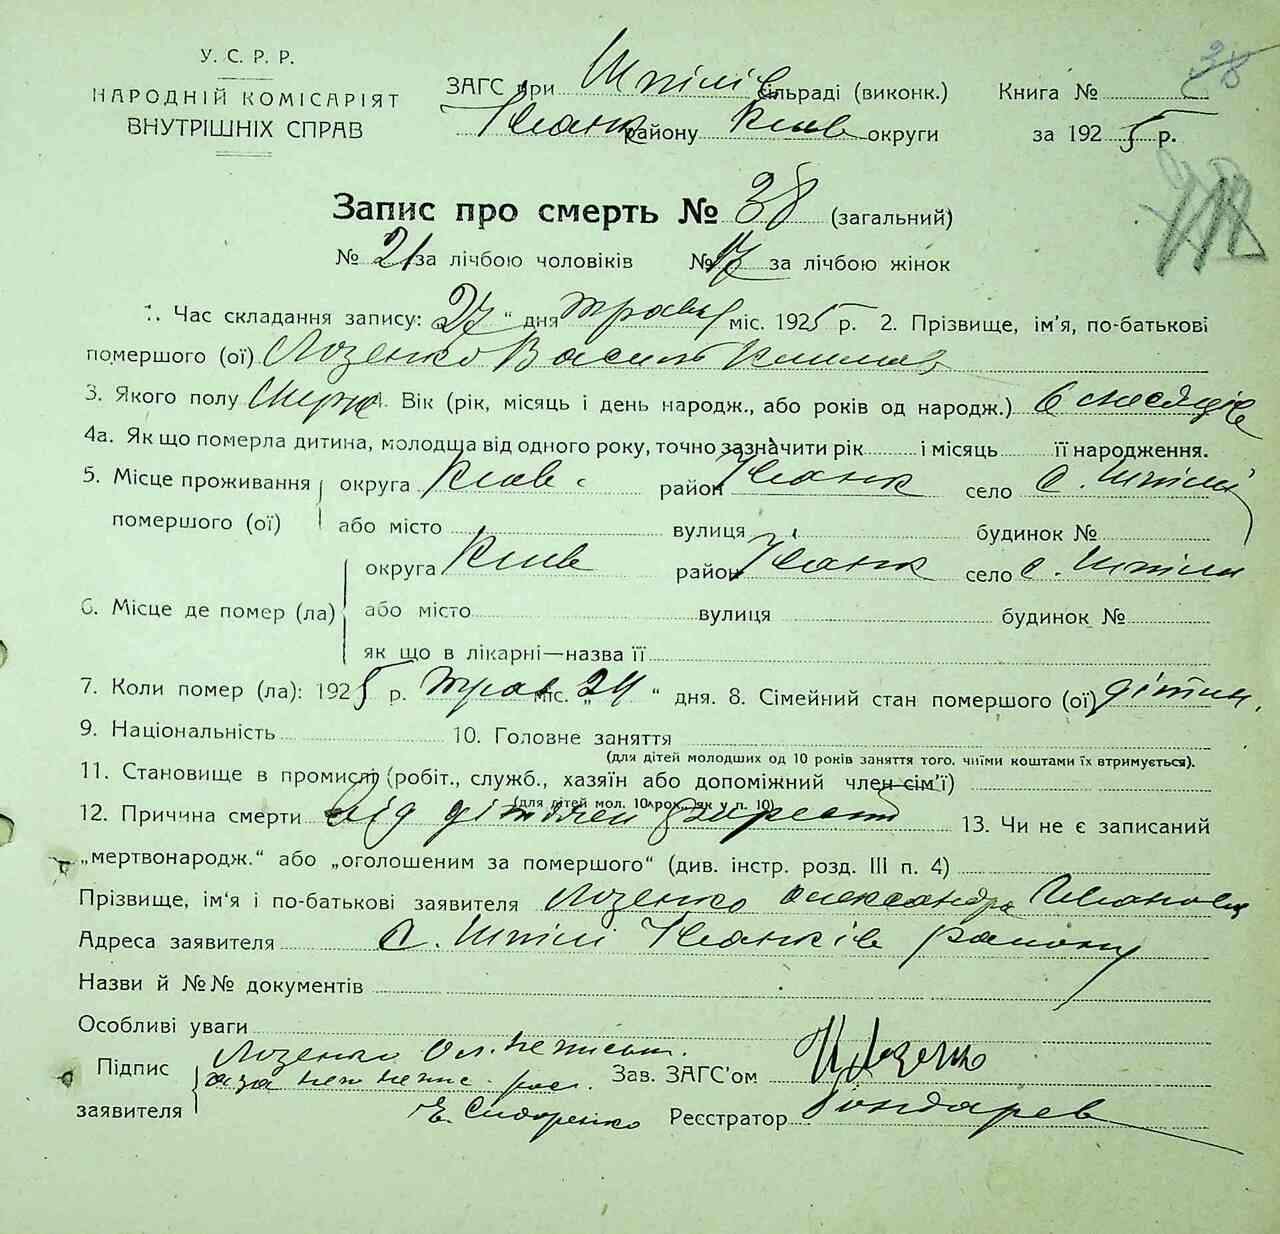 38
У. С. Р. Р.
НАРОДНІЙ КОМІСАРІЯТ
ВНУТРІШНІХ СПРАВ
ЗАГС при Шпілів сільраді (виконк.) Книга №
Іванк району Київ округи за 1925 р.
Запис про смерть № 38 (загальний)
№ 21 за лічбою чоловіків № 17 за лічбою жінок
1. Час складання запису: „27“ дня травня міс. 1925 р. 2. Прізвище, ім'я, по-батькові
помершого (ої) Лозенко Василь Климов
3. Якого полу Муж 4. Вік (рік, місяць і день народж., або років од народж.) 6 місяців
4а. Як що померла дитина, молодща від одного року, точно зазначити рік і місяць її народження.
5. Місце проживання помершого (ої) округа Київ район Іванк село с. Шпілі
або місто вулиця будинок №
6. Місце де помер (ла) округа Київ район Іванк село с. Шпіли
або місто вулиця будинок №
як що в лікарні—назва її
7. Коли помер (ла): 1925 р. трав міс. „24“ дня. 8. Сімейний стан помершого (ої) дітин.
9. Національність 10. Головне заняття
(для дітей молодших од 10 років заняття того, чиїми коштами їх втримується).
11. Становище в промислі (робіт., служб., хазяїн або допоміжний член сім'ї)
(для дітей мол. 10 рок., як у п. 10)
12. Причина смерти від дітячей 13. Чи не є записаний
„мертвонародж.“ або „оголошеним за помершого“ (див. інстр. розд. III п. 4)
Прізвище, ім'я і по-батькові заявителя Лозенко Олександра Іванівна
Адреса заявителя с. Шпілі Іванків району
Назви й №№ документів
Особливі уваги
Підпис заявителя Лозенко Ол. неписьм.
а за неї
Є. Сидоренко
Зав. ЗАГС'ом Лозенко
Реєстратор Бондарев